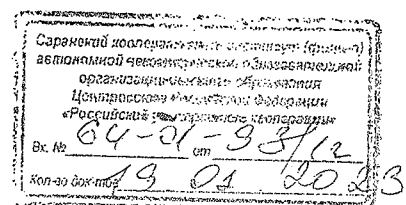 Саранский кооперативный институт (филиал)
автономной некоммерческой образовательной
организации высшего образования
Центросоюза Российской Федерации
«Российский университет кооперации»
Вх. № 64-01-93/12 от
Кол-во док-тов 19 01 2023